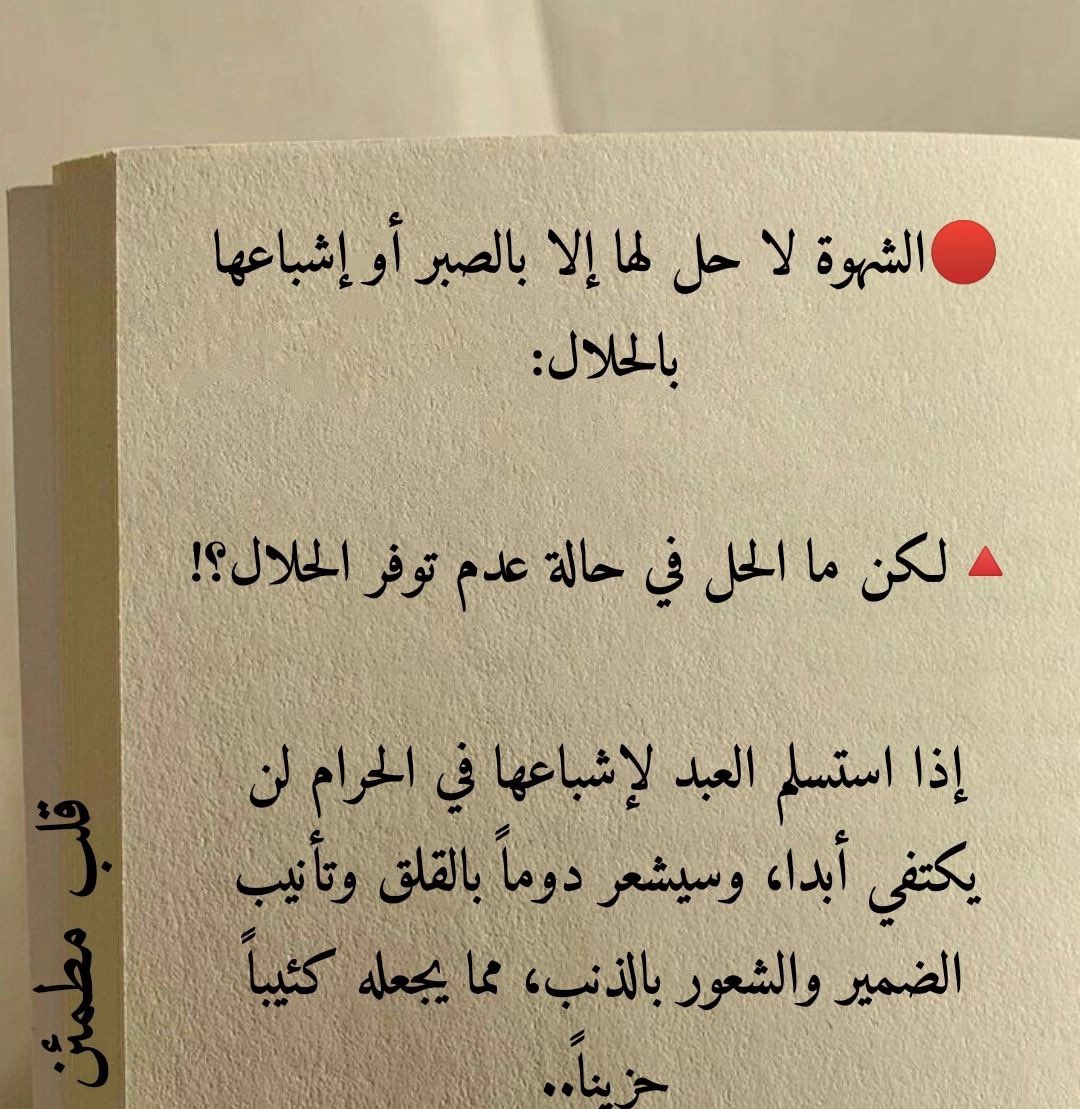 🔴الشهوة لا حل لها إلا بالصبر أو إشباعها
بالحلال:
🔺 لكن ما الحل في حالة عدم توفر الحلال؟!
إذا استسلم العبد لإشباعها في الحرام لن
يكتفي أبدا، وسيشعر دوماً بالقلق وتأنيب
الضمير والشعور بالذنب، مما يجعله كئيباً
حزيناً..
قلب مطمئن